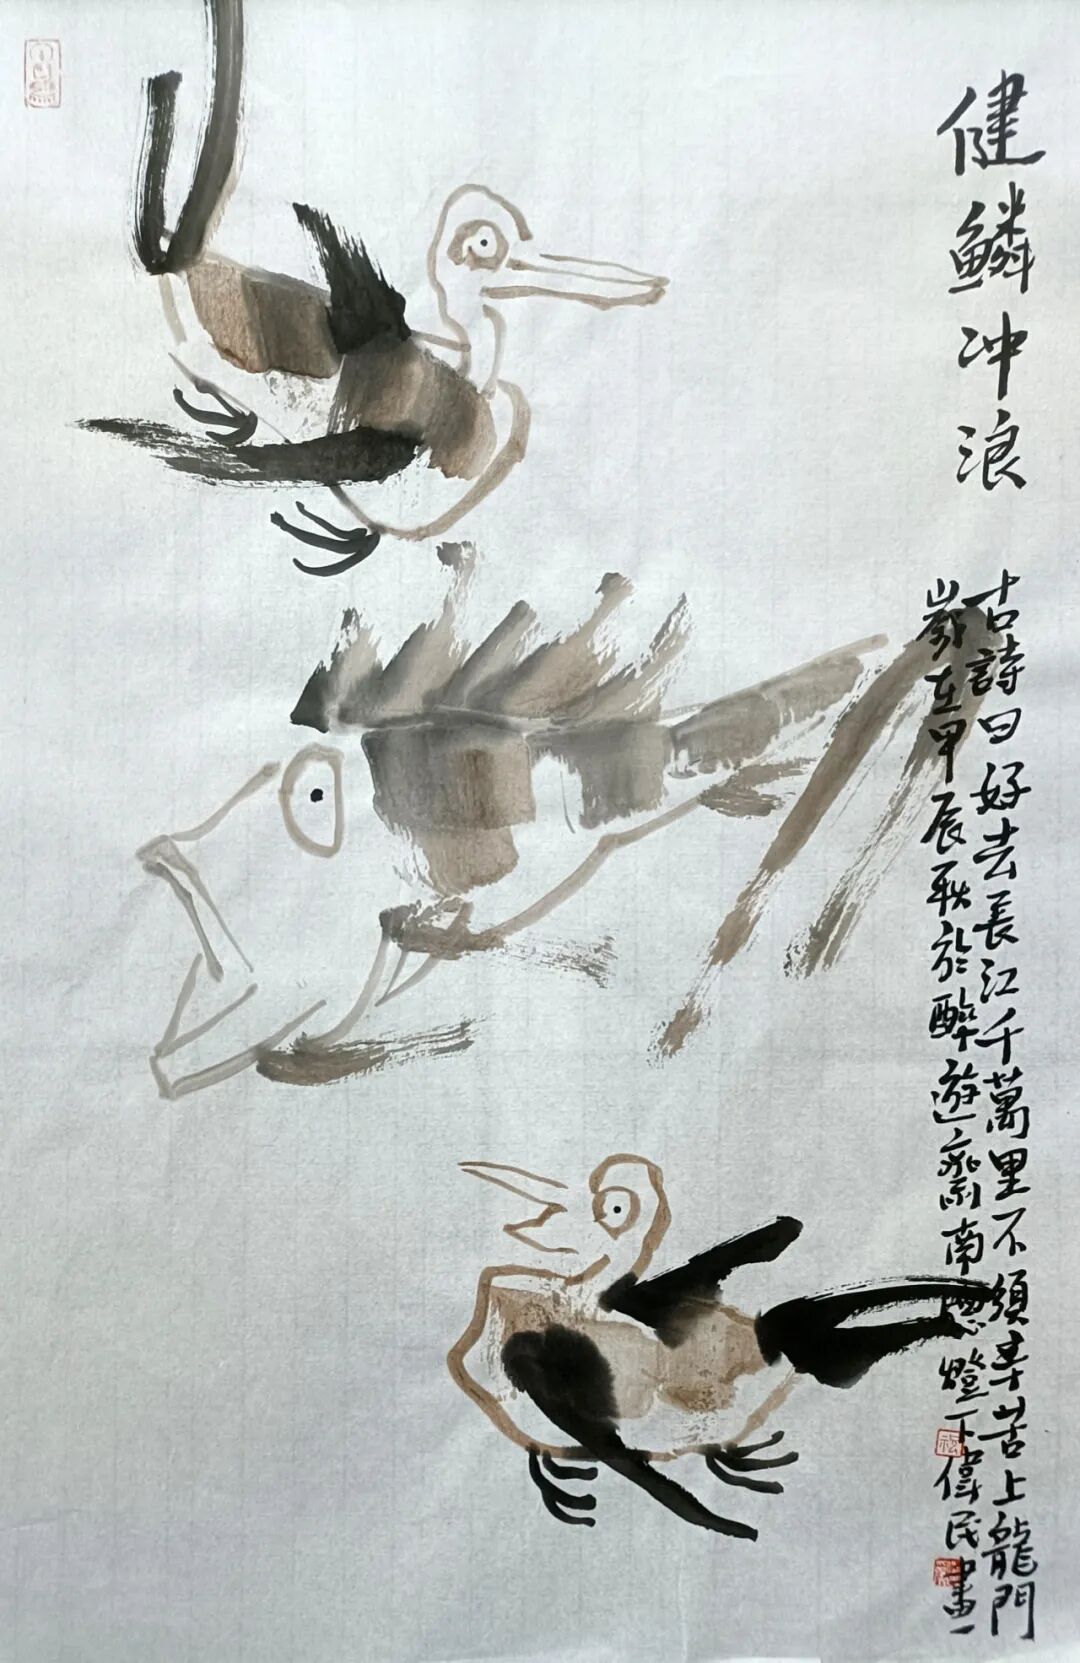 健鳞冲浪
古詩曰好去長江千萬里不須辛苦上龍門
歲在甲辰秋於醉遊齋南窗燈下偉民畫